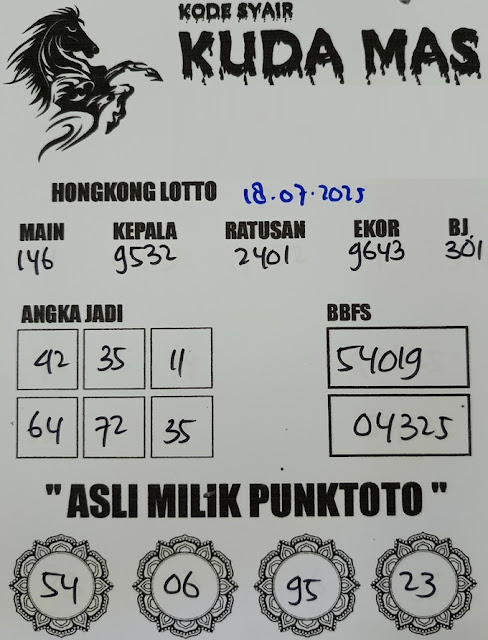 KODE SYAIR
KUDA MAS
HONGKONG LOTTO 18.07.2025
MAIN KEPALA RATUSAN EKOR BJ
146 9532 2401 9643 301
ANGKA JADI BBFS
42 35 11 54019
64 72 35 04325
" ASLI MILIK PUNKTOTO "
54 06 95 23